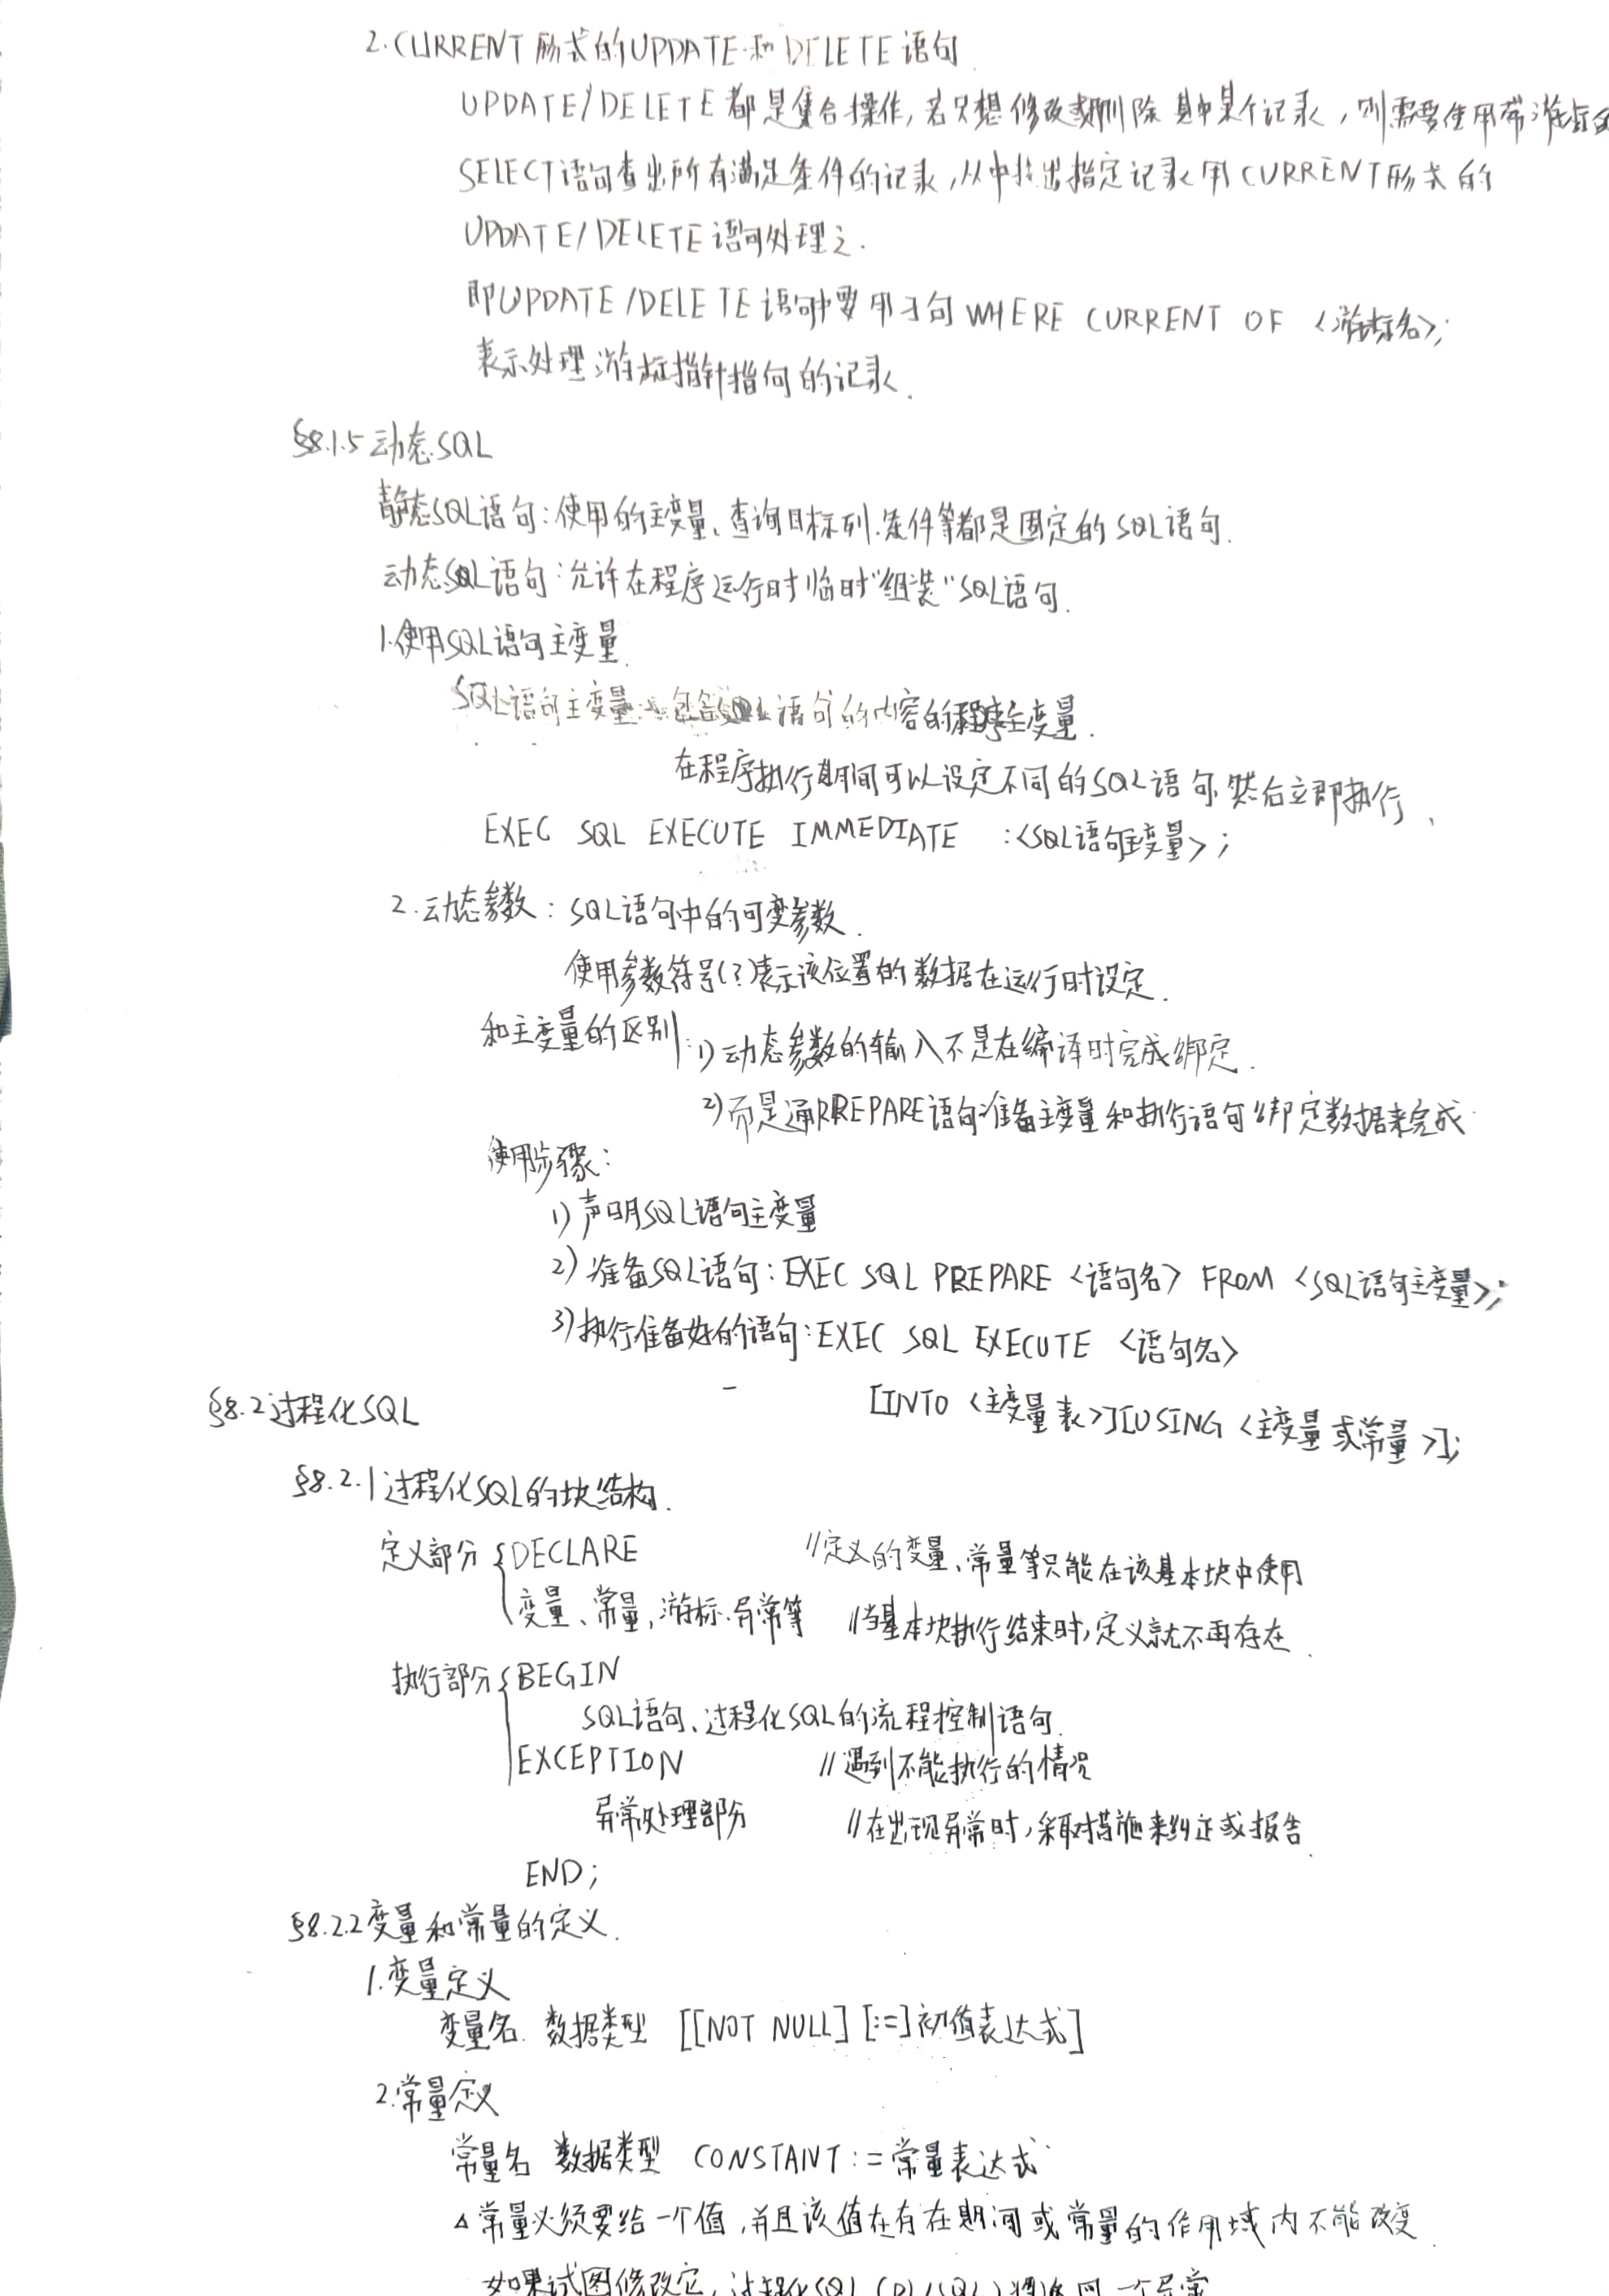 2.CURRENT形式的UPDATE和DELETE语句
UPDATE/DELETE都是集合操作,若只想修改或删除其中某个记录,则需要使用带游标的
SELECT语句查出所有满足条件的记录,从中找出指定记录用CURRENT形式的
UPDATE/DELETE语句处理之.
即UPDATE/DELETE语句中要用子句WHERE CURRENT OF <游标名>;
表示处理游标指针指向的记录.
§8.1.5动态SQL
静态SQL语句:使用的主变量、查询目标列.条件等都是固定的SQL语句.
动态SQL语句:允许在程序运行时临时"组装"SQL语句.
1.使用SQL语句主变量.
SQL语句主变量:包含SQL语句的内容的程序主变量.
在程序执行期间可以设定不同的SQL语句,然后立即执行.
EXEC SQL EXECUTE IMMEDIATE :<SQL语句主变量>;
2.动态参数:SQL语句中的可变参数.
使用参数符号(?)表示该位置的数据在运行时设定.
和主变量的区别:1)动态参数的输入不是在编译时完成绑定.
2)而是通PREPARE语句准备主变量和执行语句绑定数据来完成.
使用步骤:
1)声明SQL语句主变量
2)准备SQL语句:EXEC SQL PREPARE <语句名> FROM <SQL语句主变量>;
3)执行准备好的语句:EXEC SQL EXECUTE <语句名>
[INTO <主变量表>][USING <主变量或常量>];
§8.2过程化SQL
§8.2.1过程化SQL的块结构.
定义部分{DECLARE //定义的变量、常量等只能在该基本块中使用
变量、常量,游标.异常等 //当基本块执行结束时,定义就不再存在.
执行部分{BEGIN
SQL语句、过程化SQL的流程控制语句.
EXCEPTION //遇到不能执行的情况
异常处理部分 //在出现异常时,采取措施来纠正或报告.
END;
§8.2.2变量和常量的定义.
1.变量定义
变量名. 数据类型 [[NOT NULL][:=]初值表达式]
2.常量定义
常量名 数据类型 CONSTANT:=常量表达式
△常量必须要给一个值,并且该值在存在期间或常量的作用域内不能改变.
如果试图修改它,过程化SQL(PL/SQL)将返回一个异常